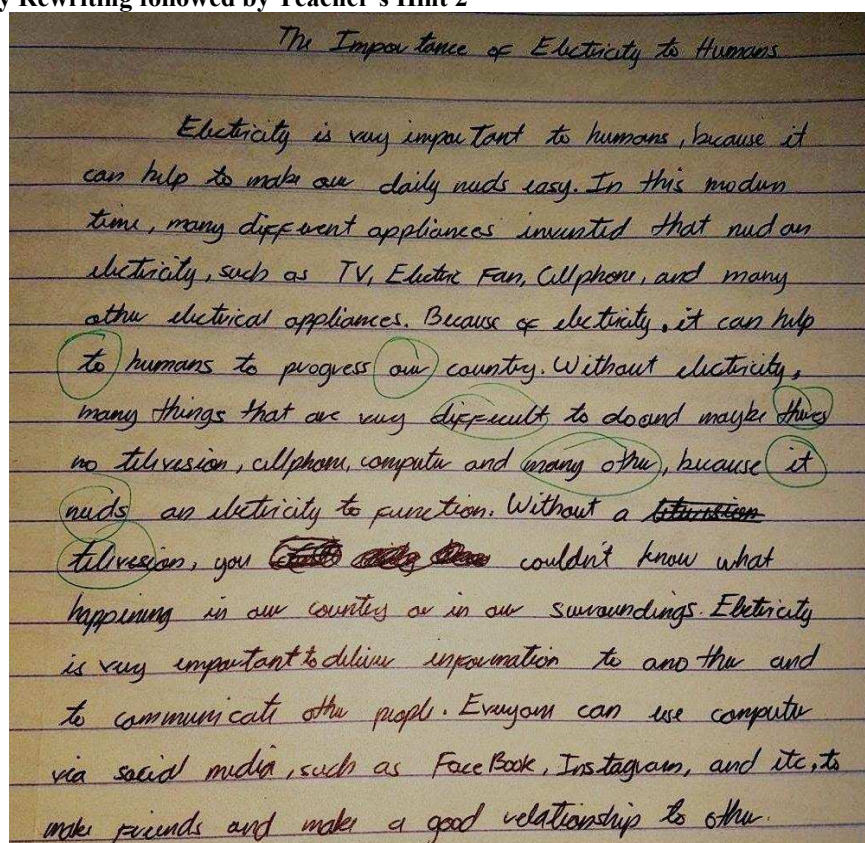 y Rewriting followed by Teacher's Hint 2
The Importance of Electricity to Humans
Electricity is very important to humans, because it
can help to make our daily needs easy. In this modern
time, many different appliances invented that need an
electricity, such as TV, Electric Fan, Cellphone, and many
other electrical appliances. Because of electricity, it can help
to humans to progress our country. Without electricity,
many things that are very difficult to do and maybe theres
no telivesion, cellphone, computer and many other, because it
needs an electricity to function. Without a
telivesion, you couldn't know what
happening in our country or in our surroundings. Electricity
is very important to deliver information to another and
to communicate other people. Everyone can use computer
via social media, such as FaceBook, Instagram, and etc, to
make friends and make a good relationship to other.